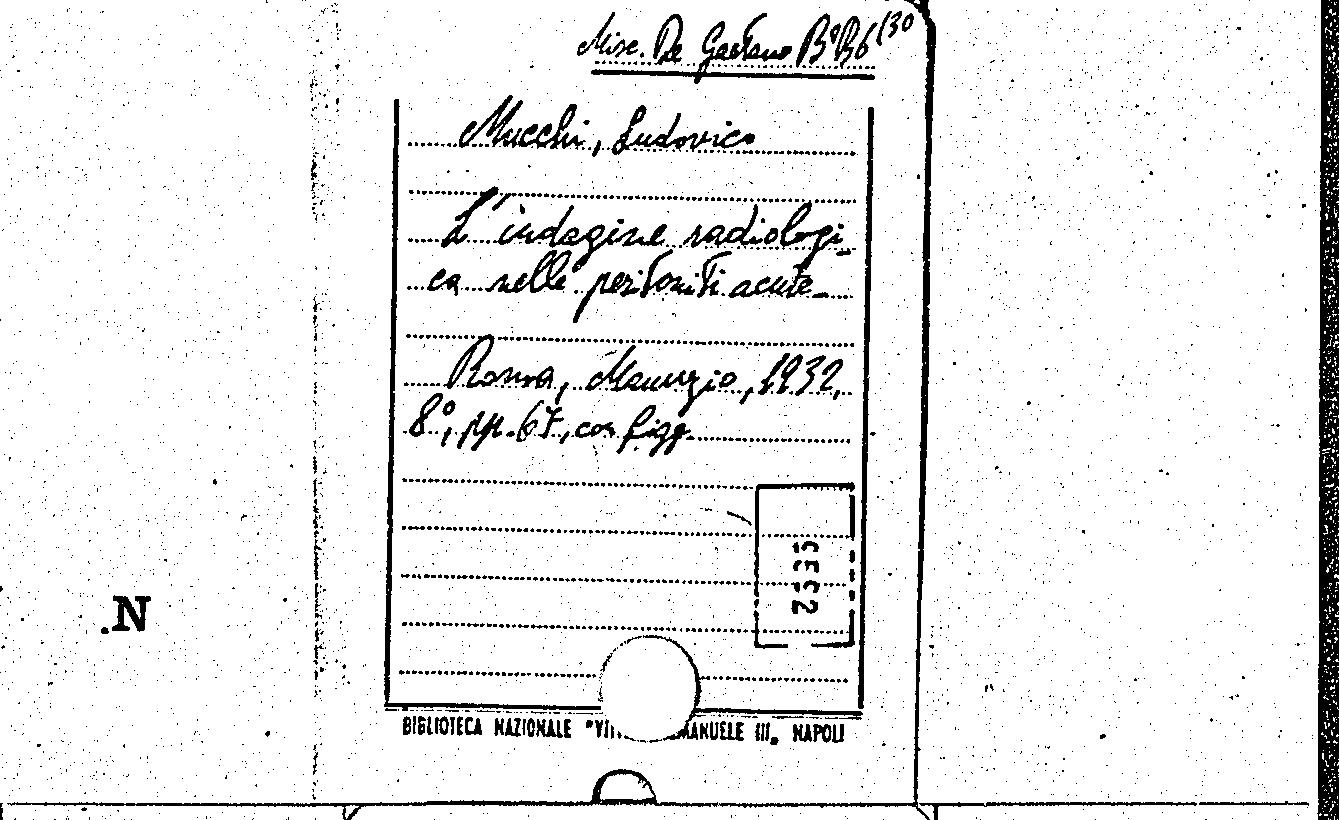 Misc. De Gaetano B° B6 (30
Mucchi, Ludovico
L'indagine radiologi-
ca nelle peritoniti acute_
Roma, Manuzio, 1932,
8°, pp. 67, con figg.
N.
BIBLIOTECA NAZIONALE "VITT EMANUELE III„ NAPOLI